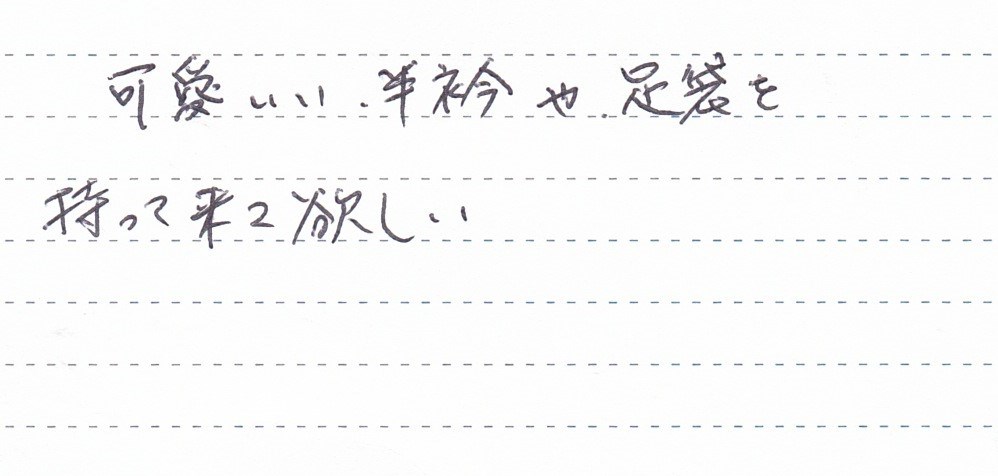 可愛いい.半衿や.足袋を
持って来て欲しい